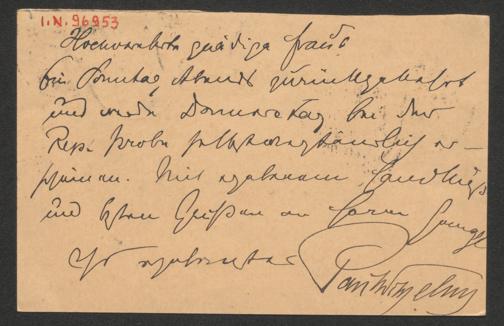 I.N. 96953
Hochverehrte gnädige Frau!
bin Sonntag Abends zurückgekehrt
und werde Donnerstag bei der
Rep. Probe selbstverständlich er-
scheinen. Mit ergebenem Handkuß
und besten Grüßen an Herrn
Ihr ergebenster